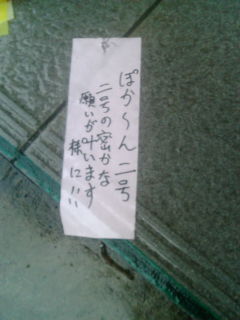 ぽか〜ん二号
二号の密かな
願いが叶います
様に!!!